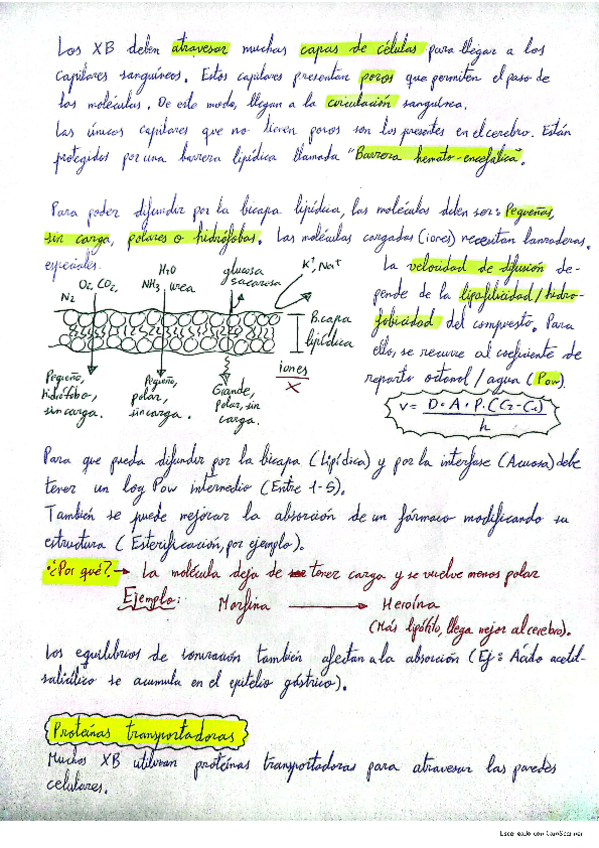 Los XB deben atravesar muchas capas de células para llegar a los
capilares sanguíneos. Estos capilares presentan poros que permiten el paso de
las moléculas. De este modo, llegan a la circulación sanguínea.
Las únicas capilares que no tienen poros son los presentes en el cerebro. Están
protegidos por una barrera lipídica llamada "Barrera hemato-encefálica".
Para poder difundir por la bicapa lipídica, las moléculas deben ser: Pequeñas,
sin carga, polares o hidrófobas. Las moléculas cargadas (iones) necesitan
especiales.
N2
O2, CO2,
H2O
NH3, urea
glucosa
sacarosa
K+, Na+
Bicapa
lipídica
iones
X
Pequeño,
hidrófobo,
sin carga.
Pequeño,
polar,
sin carga.
Grande,
polar, sin
carga.
La velocidad de difusión de-
pende de la lipofilicidad/hidro-
fobicidad del compuesto. Para
ello, se recurre al coeficiente de
reparto octanol/agua (Pow).
V = D·A·P·(C2-C1)
h
Para que pueda difundir por la bicapa (Lipídica) y por la interfase (Acuosa) debe
tener un log Pow intermedio (Entre 1-5).
También se puede mejorar la absorción de un fármaco modificando su
estructura (Esterificación, por ejemplo).
·¿Por qué? → La molécula deja de tener carga y se vuelve menos polar
Ejemplo: Morfina → Heroína
(Más lipófilo, llega mejor al cerebro).
Los equilibrios de ionización también afectan a la absorción (Ej: Ácido acetil-
salicílico se acumula en el epitelio gástrico).
Proteínas transportadoras
Muchos XB utilizan proteínas transportadoras para atravesar las paredes
celulares.
Escaneado con CamScanner